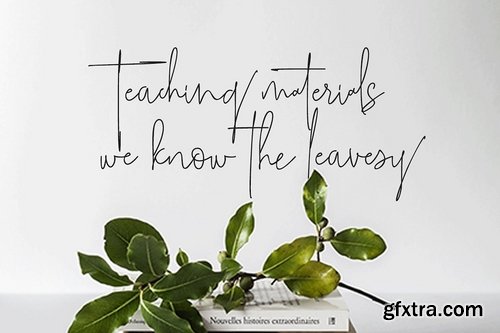 teaching materials
we know the leavesy
Nouvelles histoires extraordinaires
gfxtra.com